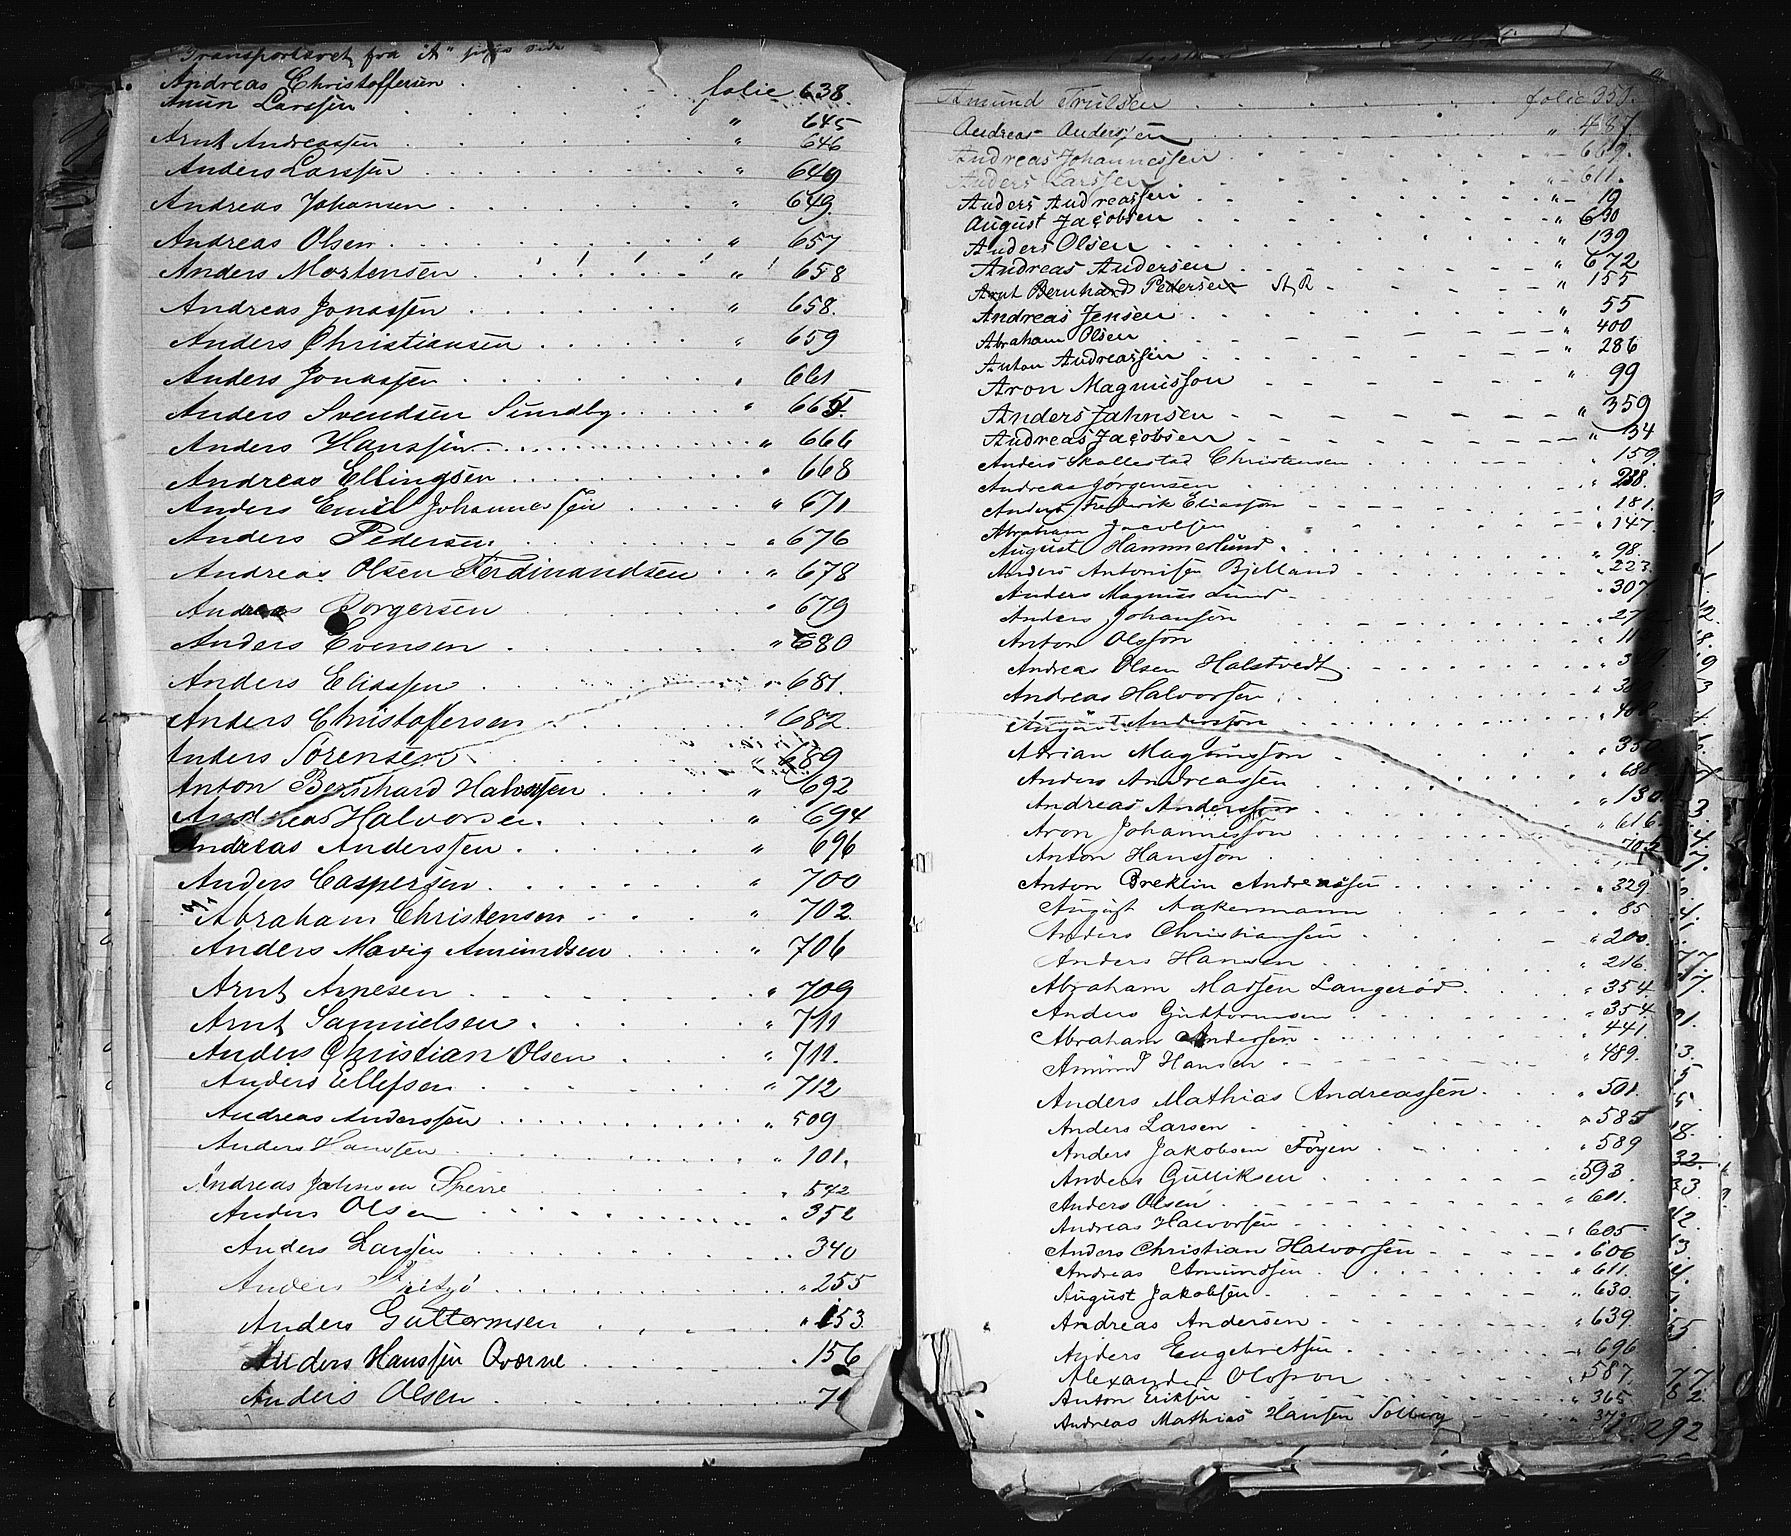 Transportsret fra "A"
Andreas Christoffersen folie 638
Amun Larssen " 645
Arnt Andreassen " 646
Anders Larssen " 649
Andreas Johansen " 649
Andreas Olsen " 657
Anders Mortensen " 658
Andreas Jonassen " 658.
Anders Christiansen " 659
Anders Jonassen " 661
Anders Svendsen Sundby
Anders Hanssen " 666
Andreas Ellingsen " 668
Anders Emil Johannessen " 671
Anders Pedersen " 676
Andreas Olsen Ferdinandsen " 678
Andreas Borgersen " 679
Anders Evensen " 680
Anders Eliassen " 681.
Anders Christoffersen " 682
Anders Sørensen " 689
Anton Bernhard Halvorsen " 692
Andreas Halvorsen " 694
Andreas Anderssen " 696
Anders Caspersen " 700
Abraham Christensen " 702
Anders Movig Amundsen " 706
Arnt Arnesen " 709
Arnt Samuelsen " 711
Anders Christian Olsen " 711.
Anders Ellefsen " 712
Andreas Anderssen " 509
Anders Hanssen " 101.
Andreas Jahnsen Sperre " 542
Anders Olsen " 352
Anders Larssen " 340
Anders " 255
Anders Guttormsen " 153
Anders Hanssen Qværne " 156
Anders Olsen
Amund Trulsen folie 350.
Andreas Anderssen " 487
Andreas Johannessen " 669.
Anders Larssen " 611.
Anders Andreassen " 19
August Jacobsen " 630
Anders Olsen " 139
Andreas Andersen " 672
Arnt Bernhard Pedersen St, R " 155
Andreas Jensen " 55
Abraham Olsen " 400
Anton Andreassen " 286
Aron Magnusson " 99
Anders Jahnsen " 359
Andreas Jacobsen " 134
Anders Skallestad Christensen " 159.
Andreas Jørgensen " 238.
Anders Frederik Eliasson " 181.
Abraham Jacobsen " 147.
August Hammerlund " 98.
Anders Antonisen Bjelland " 223.
Anders Magnus Lund " 307
Anders Johanson
Anton Olsson
Andreas Olsen Halstvedt
Andreas Halvorsen
August Andersson
Adrian Magnusson " 330
Anders Andreassen " 688
Andreas Andersson " 130
Aron Johannesson " 616
Anton Hansson " 702
Anton Breklin Andreassen " 329
August Aakermann " 85
Anders Christiansen " 200.
Anders Hansen " 216.
Abraham Madsen Langerød " 354.
Anders Guttormsen " 354
Abraham Andersen " 441.
Amund Hansen " 489.
Anders Mathias Andreassen " 501.
Anders Larsen " 585
Anders Jakobsen Føyen " 589
Anders Gulliksen " 593
Anders Olsen " 601.
Andreas Halvorsen " 605
Anders Christian Halvorsen " 606
Andreas Amundsen " 611.
August Jakobsen " 630.
Andreas Andersen " 639
Anders Engebretsen " 696
Alexander Olofson " 587.
Anton Eriksen " 365
Andreas Mathias Hansen Solberg
292